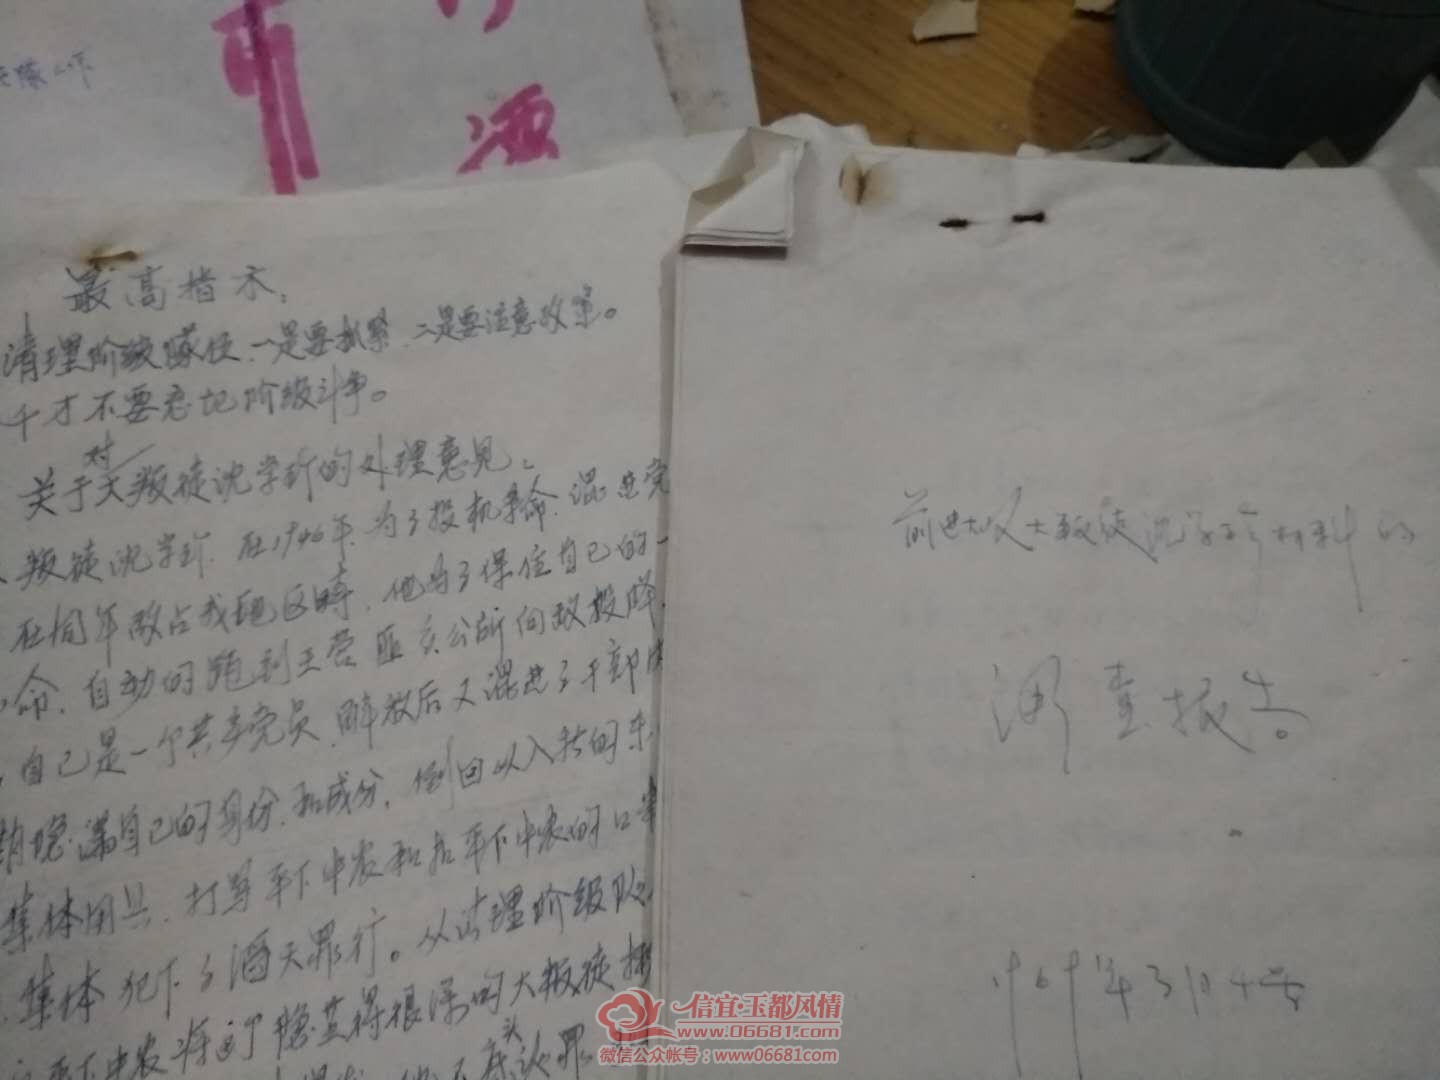 酒
最高指示:
清理阶级队伍,一是要抓紧,二是要注意政策。
千才不要忘记阶级斗争。
对
关于大叛徒沈学珍的处理意见:
叛徒沈学珍,在1946年,为了投机革命,混进党
在同年敌占我地区时,他为了保住自己的一
命,自动的跑到王营区公所向敌投降,
自己是一个共产党员,解放后又混进了干部队
瞒自己的身份和成分,倒回以入社的东
集体用具,打骂平下中农和扣平下中农的口粮
集体犯下了滔天罪行。从清理阶级队
平下中农将这个隐芷得很深的大叛徒揪
认罪
大叛徒沈学珍材料的
调查报告。
1969年3月4号
信宜·玉都风情
www.06681.com
微信公众帐号:www06681com